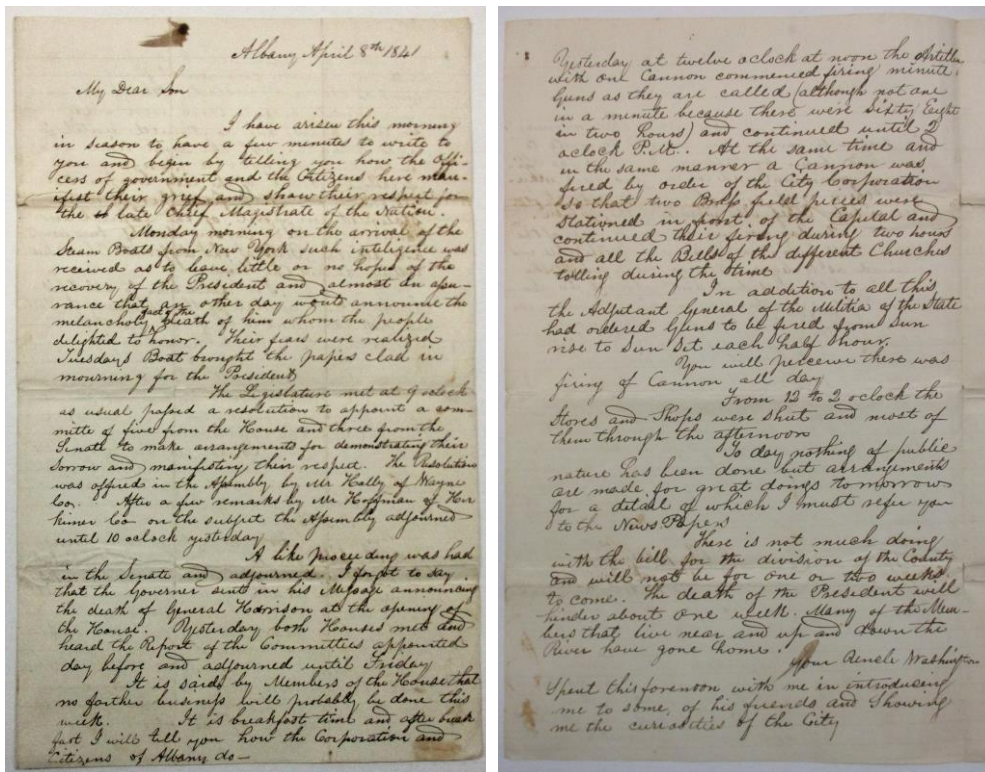 Albany April 8th 1841
My Dear Son
I have arisen this morning
in season to have a few minutes to write to
you and begin by telling you how the Offi-
cers of government and the Citizens here man-
ifest their grief and show their respect for
the late Chief Magistrate of the Nation.
Monday morning on the arrival of the
Steam Boats from New York such inteligence was
received as to leave little or no hopes of the
recovery of the President and almost an assu-
rance that an other day would announce the
melancholy fact of the death of him whom the people
delighted to honor. Their fears were realized
Tuesdays Boat brought the papers clad in
mourning for the President
The Legislature met at 9 oclock
as usual passed a resolution to appoint a com-
mitte of five from the House and three from the
Senate to make arrangements for demonstrating their
sorrow and manifesting their respect. The Resolution
was offired in the Assembly by Mr Holly of Wayne
Co. After a few remarks by Mr Hoffman of Her
kimer Co on the subject the Assembly adjourned
until 10 oclock yesterday
A like proceeding was had
in the Senate and adjourned. I forgot to say
that the Governer sent in his Message announcing
the death of General Harrison at the opening of
the House. Yesterday both Houses met and
heard the Report of the Committees appointed
day before and adjourned until Friday
It is said by Members of the House that
no further business will probably be done this
week. It is breakfast time and after break
fast I will tell you how the Corporation and
Citizens of Albany do—
Yesterday at twelve oclock at noon the
with one Cannon commenced firing minute
Guns as they are called (although not one
in a minute because there were Sixty Eight
in two hours) and continued until 2
oclock P.M.. At the same time and
in the same manner a Cannon was
fired by order of the City Corporation
so that two Brass field pieces were
stationed in front of the Capital and
continued their firing during two hours
and all the Bells of the different Churches
tolling during the time
In addition to all this
the Adjutant General of the Militia of the State
had ordered Guns to be fired from Sun
rise to Sun Set each half hour.
You will perceive there was
firing of Cannon all day
From 12 to 2 oclock the
Stores and Shops were shut and most of
them through the afternoon
To day nothing of public
nature has been done but arrangements
are made for great doings tomorrow
for a detail of which I must refer you
to the News Papers
There is not much doing
with the bill for the division of the County
and will not be for one or two weeks
to come. The death of the President will
hinder about one week. Many of the Mem-
bers that live near and up and down the
River have gone home.
Your Uncle Washington
Spent this forenoon with me in introducing
me to some of his friends and Showing
me the curiosities of the City